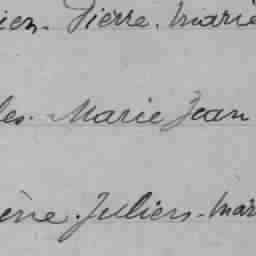 ien. Pierre. Marie
les. Marie Jean
ène. Julien. Mar